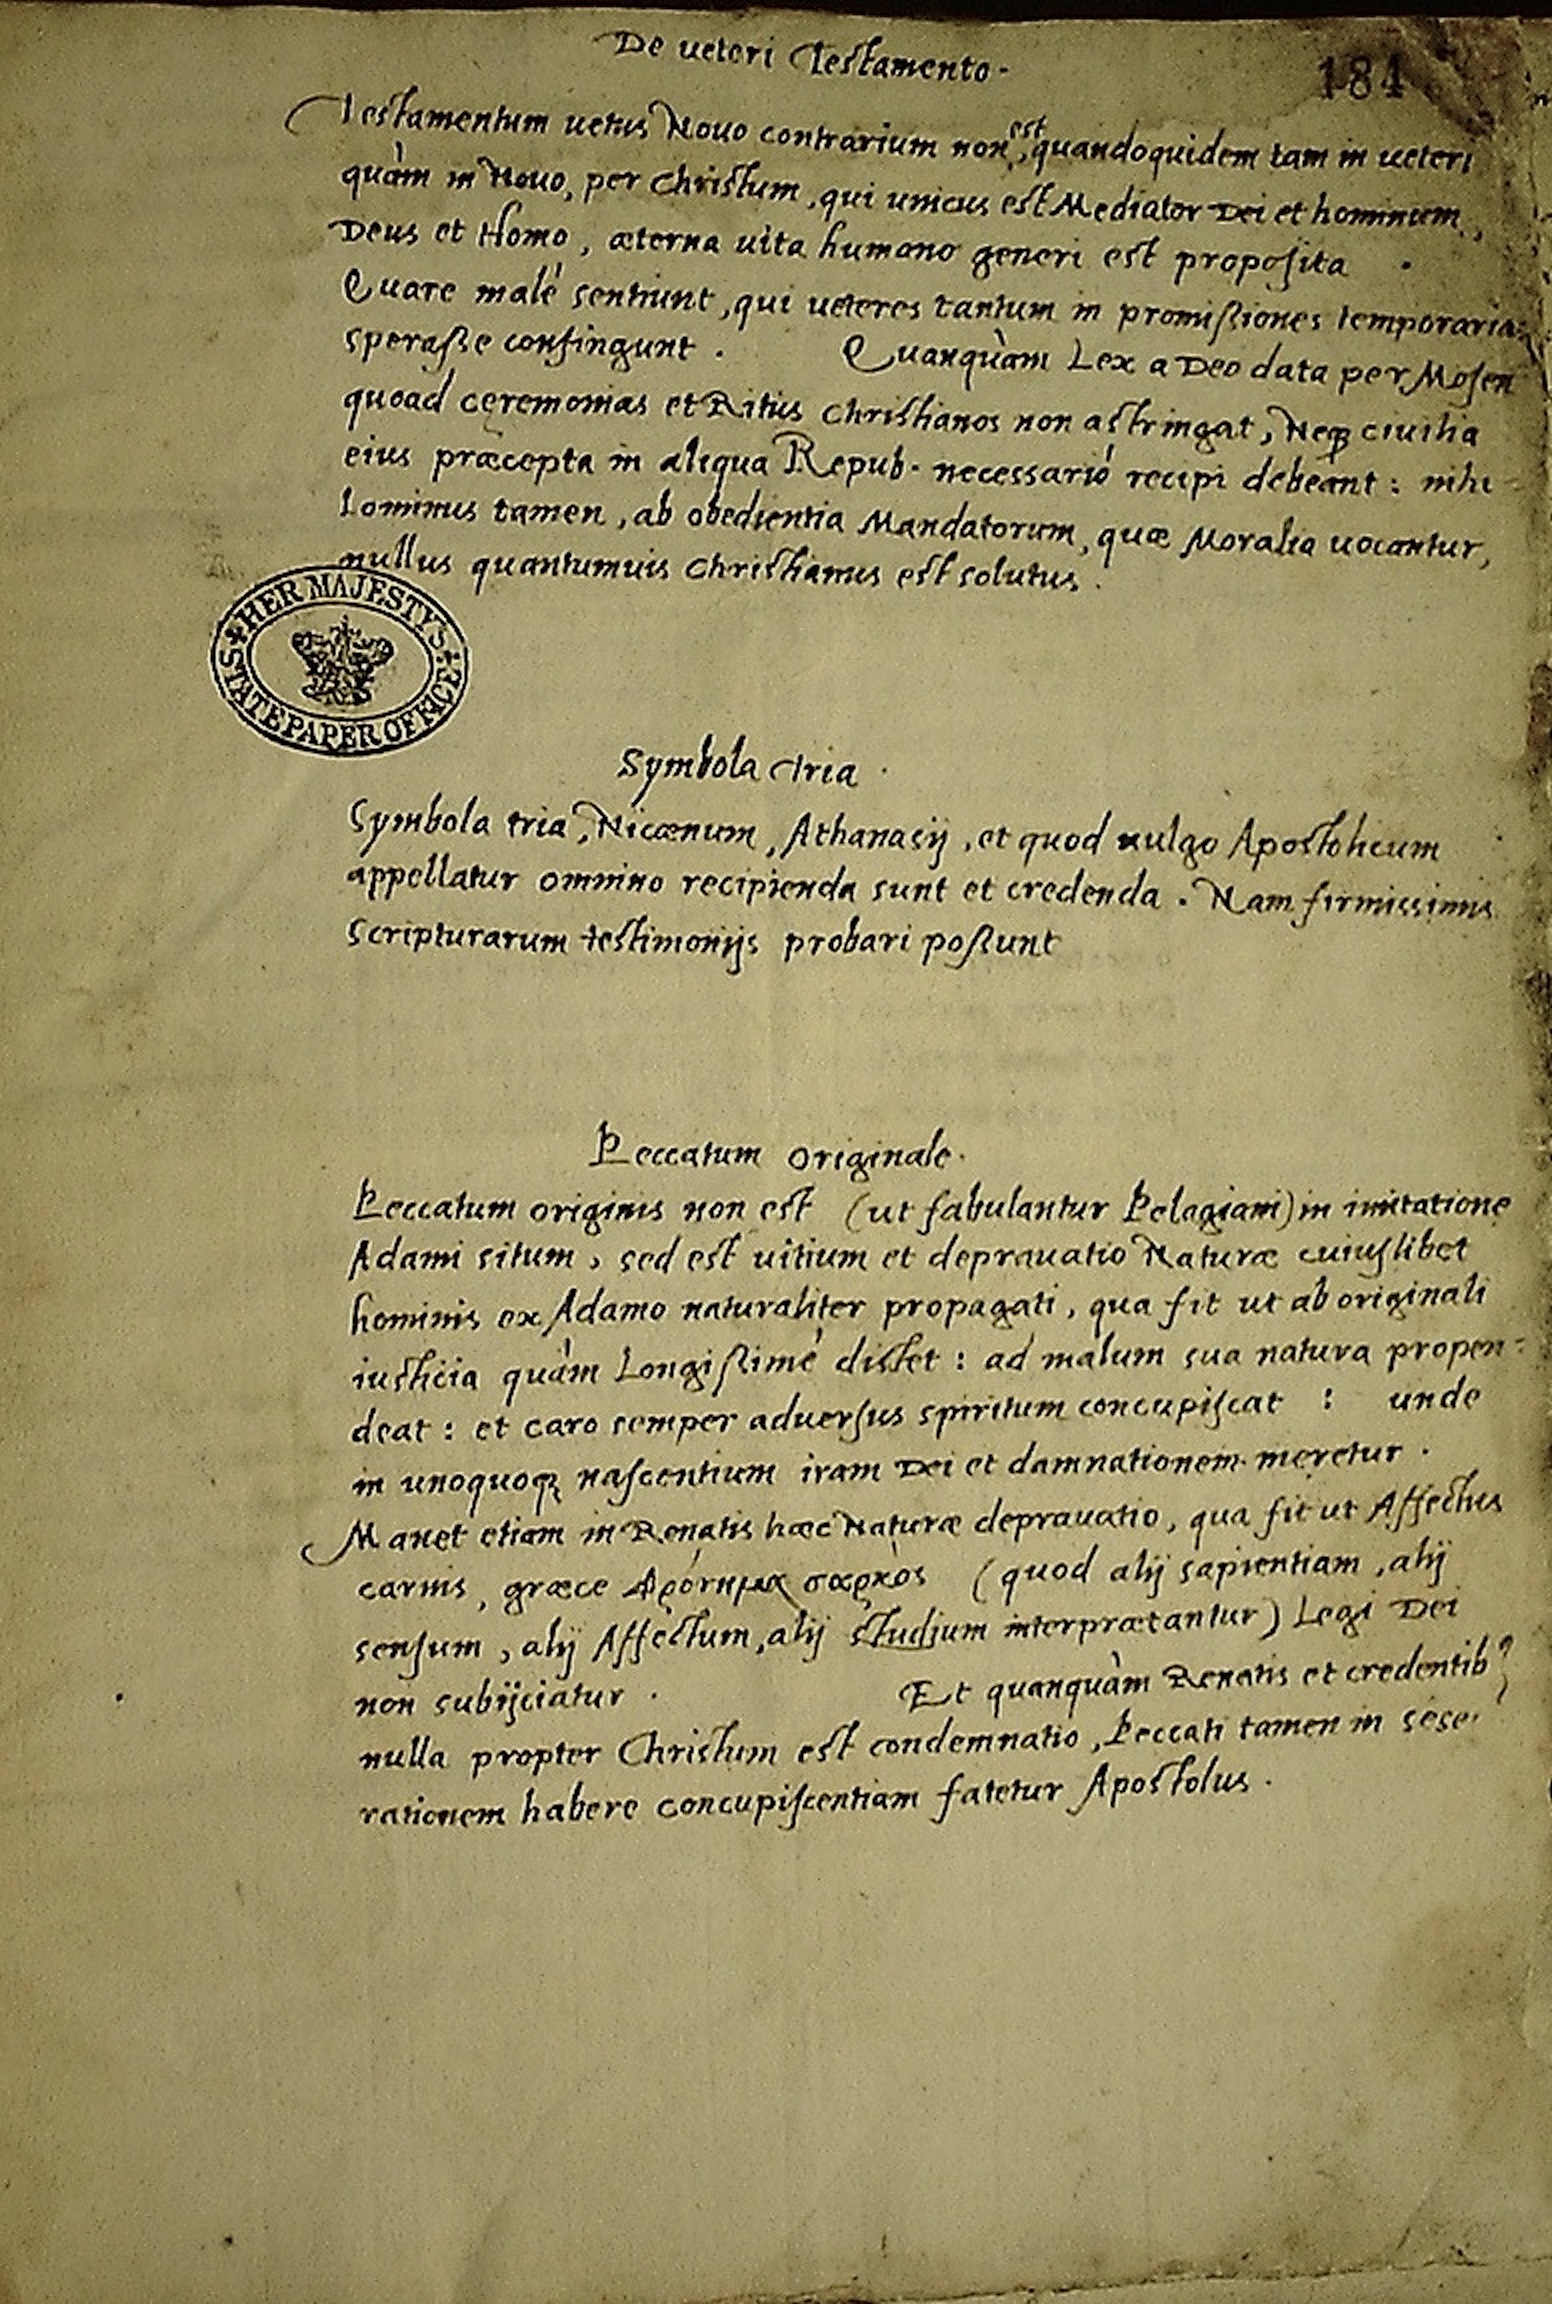 De ueteri Testamento.
184
Testamentum uetus Nouo contrarium non est, quandoquidem tam in ueteri
quàm in Nouo, per Christum, qui unicus est Mediator Dei et hominum,
Deus et Homo, æterna uita humano generi est proposita .
Quare malé sentiunt, qui ueteres tantum in promissiones temporarias
sperasse confingunt . Quanquàm Lex a Deo data per Mosen
quoad cęremonias et Ritus Christianos non astringat, Neqȝ ciuilia
eius præcepta in aliqua Repub. necessarió recipi debeant : nihi-
lominus tamen, ab obedientia Mandatorum, quæ Moralia uocantur,
nullus quantumuis Christianus est solutus .
HER MAJESTY'S
STATE PAPER OFFICE
Symbola tria .
Symbola tria, Nicænum, Athanasij, et quod uulgo Apostolicum
appellatur omnino recipienda sunt et credenda . Nam firmissimis
Scripturarum testimonijs probari possunt
Peccatum originale.
Peccatum originis non est (ut fabulantur Pelagiani) in imitatione
Adami situm, sed est uitium et deprauatio Naturæ cuiuslibet
hominis ex Adamo naturaliter propagati, qua fit ut ab originali
iusticia quàm Longissimé distet : ad malum sua natura propen-
deat : et caro semper aduersus spiritum concupiscat : unde
in unoquoqȝ nascentium iram Dei et damnationem meretur .
Manet etiam in Renatis hæc Naturæ deprauatio, qua fit ut Affectus
carnis, græce φρόνημα σαρκὸς (quod alij sapientiam, alij
sensum, alij Affectum, alij studium interprætantur) Legi Dei
non subijciatur . Et quanquàm Renatis et credentibꝰ
nulla propter Christum est condemnatio, Peccati tamen in sese
rationem habere concupiscentiam fatetur Apostolus .